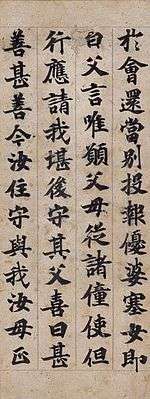 於會還當別投報優婆塞女即
白父言唯願父母從諸僮使但
行應請我堪後守其父喜曰甚
善甚善今汝住守與我汝母正